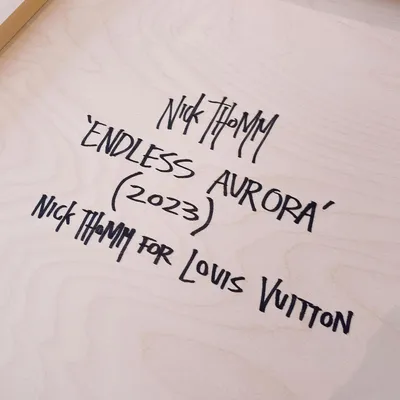 Nick THOMM
'ENDLESS AURORA'
(2023)
Nick THOMM FOR LOUIS VUITTON